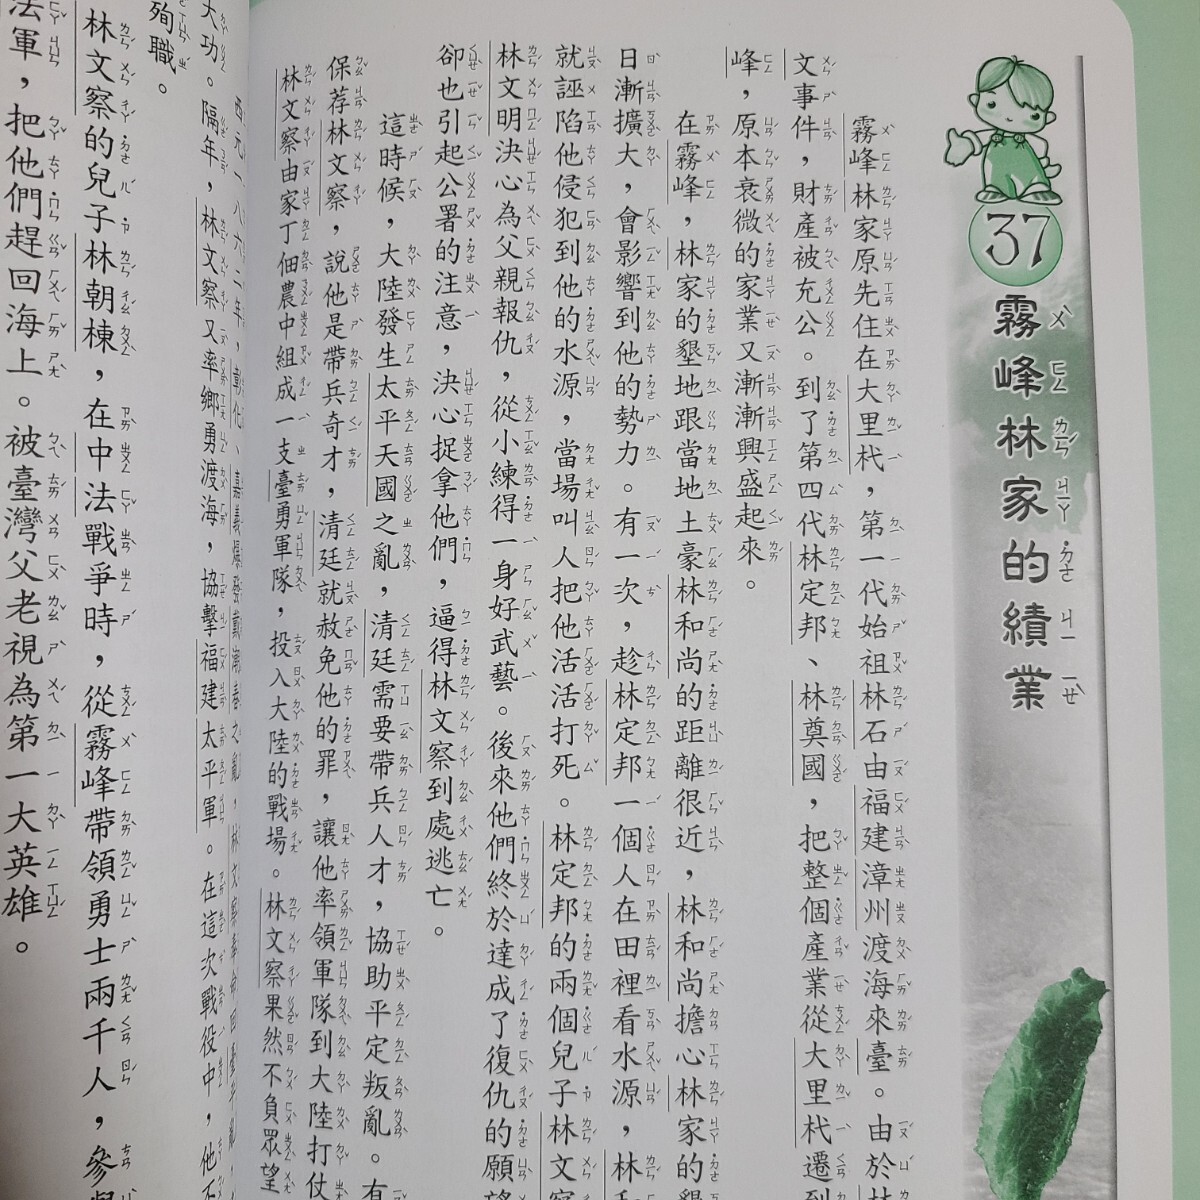 37
霧峰林家的績業
霧峰林家原先住在大里杙，第一代始祖林石由福建漳州渡海來臺。由於林
文事件，財產被充公。到了第四代林定邦、林奠國，把整個產業從大里杙遷到
峰，原本衰微的家業又漸漸興盛起來。
在霧峰，林家的墾地跟當地土豪林和尚的距離很近，林和尚擔心林家的墾
日漸擴大，會影響到他的勢力。有一次，趁林定邦一個人在田裡看水源，林和
就誣陷他侵犯到他的水源，當場叫人把他活活打死。林定邦的兩個兒子林文察
林文明決心為父親報仇，從小練得一身好武藝。後來他們終於達成了復仇的願望
卻也引起公署的注意，決心捉拿他們，逼得林文察到處逃亡。
這時候，大陸發生太平天國之亂，清廷需要帶兵人才，協助平定叛亂。有
保荐林文察，說他是帶兵奇才，清廷就赦免他的罪，讓他率領軍隊到大陸打仗
林文察由家丁佃農中組成一支臺勇軍隊，投入大陸的戰場。林文察果然不負眾望
西元一八六二年，彰化、嘉義爆發戴萬春之亂，林文察奉命回臺
大功。隔年，林文察又率鄉勇渡海，協擊福建太平軍。在這次戰役中，他不
殉職。
林文察的兒子林朝棟，在中法戰爭時，從霧峰帶領勇士兩千人，參與
法軍，把他們趕回海上。被臺灣父老視為第一大英雄。